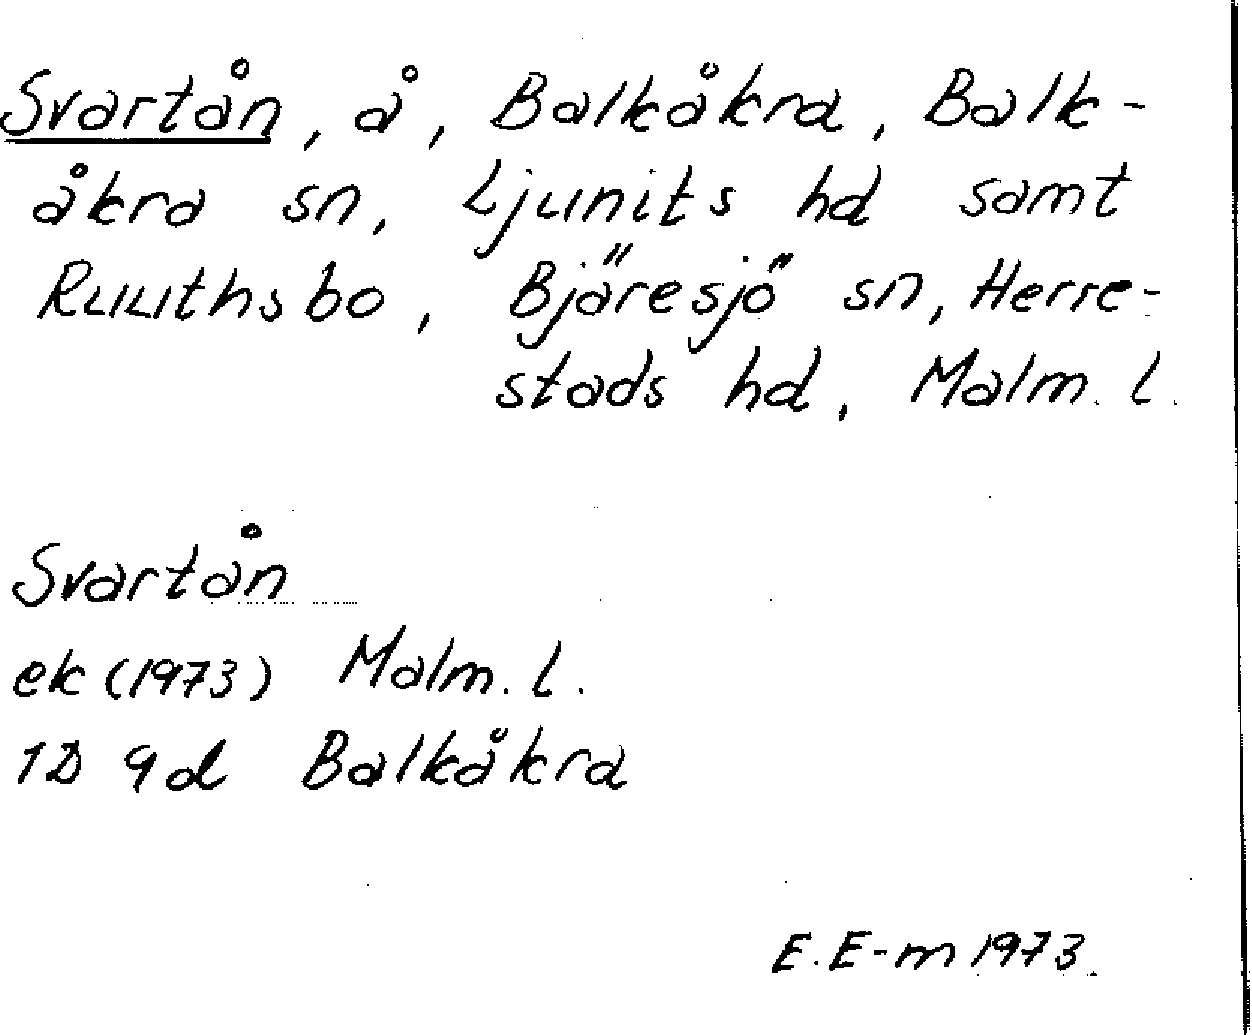 Svartån, å, Balkåkra, Balk-
åkra sn, Ljunits hd samt
Ruuthsbo, Bjäresjö sn, Herre-
stads hd, Malm. l.
Svartån
ek (1973) Malm. l.
1D 9d Balkåkra
E. E-m 1973.